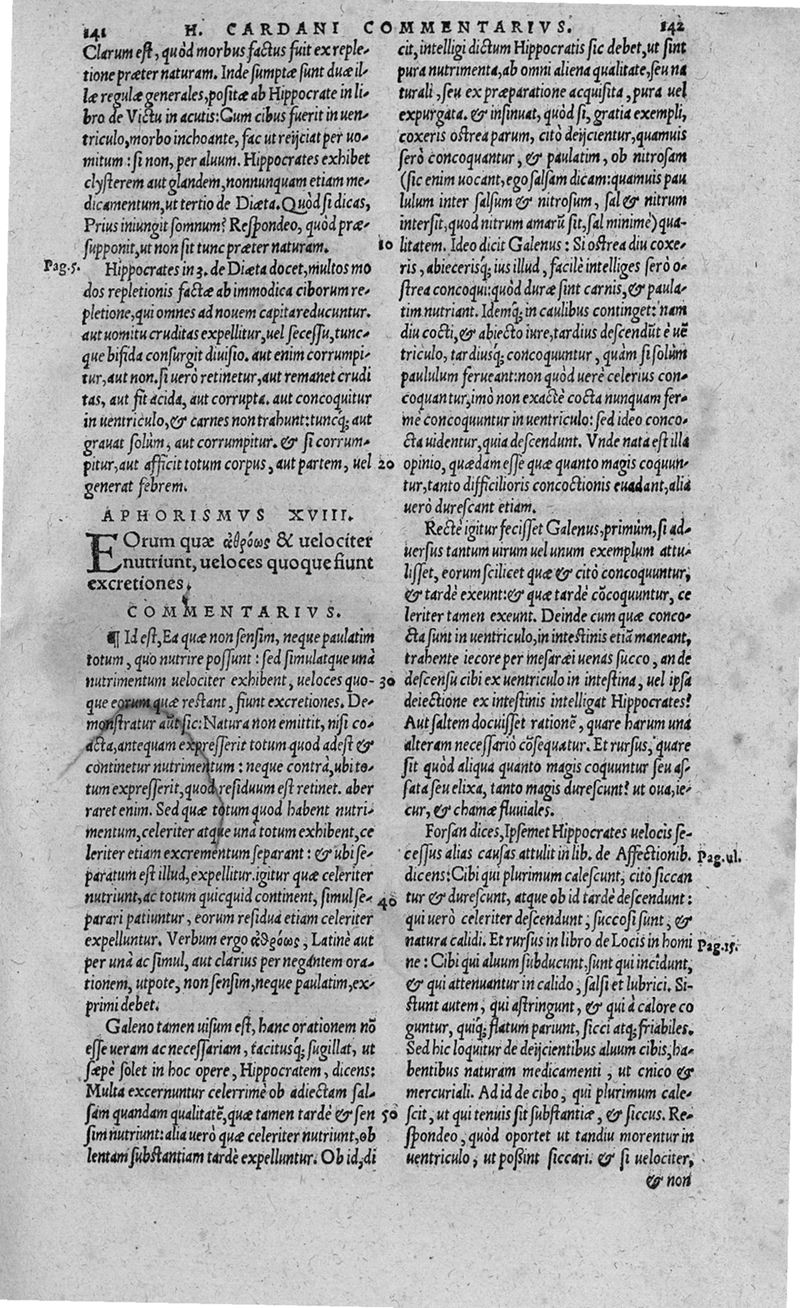 141 H. CARDANI COMMENTARIVS. 142
Clarum est, quòd morbus factus fuit ex reple-
tione præter naturam. Inde sumptæ sunt duæ il-
læ regulæ generales, positæ ab Hippocrate in li-
bro de Victu in acutis: Cum cibus fuerit in uen-
triculo, morbo inchoante, fac ut reijciat per uo-
mitum: si non, per aluum. Hippocrates exhibet
clysterem aut glandem, nonnunquam etiam me-
dicamentum, ut tertio de Diæta. Quòd si dicas,
Prius iniungit somnum? Respondeo, quòd præ-
supponit, ut non sit tunc præter naturam.
Pag. 5.
Hippocrates in 3. de Diæta docet, multos mo
dos repletionis factæ ab immodica ciborum re-
pletione, qui omnes ad nouem capita reducuntur.
aut uomitu cruditas expellitur, uel secessu, tunc-
que bifida consurgit diuisio. aut enim corrumpi-
tur, aut non. si uerò retinetur, aut remanet crudi
tas, aut fit acida, aut corrupta. aut concoquitur
in uentriculo, & carnes non trahunt: tuncq; aut
grauat solùm, aut corrumpitur. & si corrum-
pitur, aut afficit totum corpus, aut partem, uel
generat febrem.
APHORISMVS XVIII.
EOrum quæ ἀθρόως & uelociter
nutriunt, ueloces quoque fiunt
excretiones.
COMMENTARIVS.
¶ Id est, Ea quæ non sensim, neque paulatim
totum, quo nutrire possunt: sed simulatque unà
nutrimentum uelociter exhibent, ueloces quo-
que eorum quæ restant, fiunt excretiones. De-
monstratur aūt sic: Natura non emittit, nisi co-
acta, antequam expresserit totum quod adest &
continetur nutrimentum: neque contrà, ubi to-
tum expresserit, quod residuum est retinet. aber
raret enim. Sed quæ totum quod habent nutri-
mentum, celeriter atque unà totum exhibent, ce
leriter etiam excrementum separant: & ubi se-
paratum est illud, expellitur. igitur quæ celeriter
nutriunt, ac totum quicquid continent, simul se-
parari patiuntur, eorum residua etiam celeriter
expelluntur. Verbum ergo ἀθρόως, Latinè aut
per unà ac simul, aut clarius per negantem ora-
tionem, utpote, non sensim, neque paulatim, ex-
primi debet.
Galeno tamen uisum est, hanc orationem nō
esse ueram ac necessariam, tacitusq; sugillat, ut
sæpè solet in hoc opere, Hippocratem, dicens:
Multa excernuntur celerrimè ob adiectam sal-
sam quandam qualitatē, quæ tamen tardè & sen
sim nutriunt: alia uerò quæ celeriter nutriunt, ob
lentam substantiam tardè expelluntur. Ob id, di
cit, intelligi dictum Hippocratis sic debet, ut sint
pura nutrimenta, ab omni aliena qualitate, seu na
turali, seu ex præparatione acquisita, pura uel
expurgata. & insinuat, quòd si, gratia exempli,
coxeris ostrea parum, citò deijcientur, quamuis
serò concoquantur, & paulatim, ob nitrosam
(sic enim uocant, ego salsam dicam: quamuis pau
lulum inter salsum & nitrosum, sal & nitrum
intersit, quod nitrum amarū sit, sal minimè) qua-
10 litatem. Ideo dicit Galenus: Si ostrea diu coxe-
ris, abiecerisq; ius illud, facilè intelliges serò o-
strea concoqui: quòd duræ sint carnis, & paula-
tim nutriant. Idemq; in caulibus continget: nam
diu cocti, & abiecto iure, tardius descendūt è uē
triculo, tardiusq; concoquuntur, quàm si solùm
paululum ferueant: non quòd uerè celerius con-
coquantur, imò non exactè cocta nunquam fer-
mè concoquuntur in uentriculo: sed ideo conco-
cta uidentur, quia descendunt. Vnde nata est illa
20 opinio, quædam esse quæ quanto magis coquun-
tur, tanto difficilioris concoctionis euadant, alia
uerò durescant etiam.
Rectè igitur fecisset Galenus, primùm, si ad-
uersus tantum uirum uel unum exemplum attu-
lisset, eorum scilicet quæ & citò concoquuntur,
& tardè exeunt: & quæ tardè cōcoquuntur, ce
leriter tamen exeunt. Deinde cum quæ conco-
cta sunt in uentriculo, in intestinis etiā maneant,
trahente iecore per mesaræi uenas succo, an de
30 descensu cibi ex uentriculo in intestina, uel ipsa
deiectione ex intestinis intelligat Hippocrates?
Aut saltem docuisset rationē, quare harum una
alteram necessariò cōsequatur. Et rursus, quare
sit quòd aliqua quanto magis coquuntur seu as-
sata seu elixa, tanto magis durescunt? ut oua, ie-
cur, & chamæ fluuiales.
Forsan dices, Ipsemet Hippocrates uelocis se-
cessus alias causas attulit in lib. de Affectionib.
Pag. ul.
dicens: Cibi qui plurimum calescunt, citò siccan
40 tur & durescunt, atque ob id tardè descendunt:
qui uerò celeriter descendunt, succosi sunt, &
natura calidi. Et rursus in libro de Locis in homi
Pag. 15.
ne: Cibi qui aluum subducunt, sunt qui incidunt,
& qui attenuantur in calido, salsi et lubrici. Si-
stunt autem, qui astringunt, & qui à calore co
guntur, quiq; flatum pariunt, sicci atq; friabiles.
Sed hic loquitur de deijcientibus aluum cibis, ha-
bentibus naturam medicamenti, ut cnico &
mercuriali. Ad id de cibo, qui plurimum cale-
50 scit, ut qui tenuis sit substantiæ, & siccus. Re-
spondeo, quòd oportet ut tandiu morentur in
uentriculo, ut possint siccari. & si uelociter,
& non